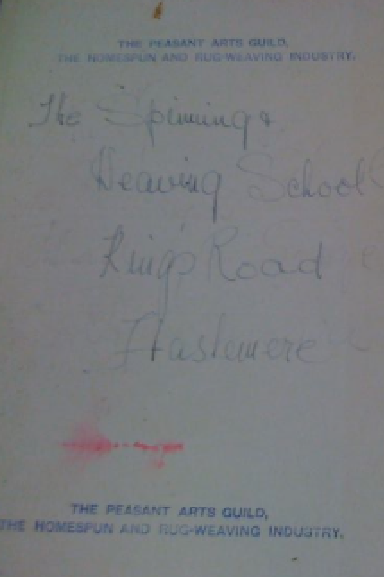 THE PEASANT ARTS GUILD,
THE HOMESPUN AND RUG-WEAVING INDUSTRY.
The Spinning &
Weaving School
King's Road
Haslemere
THE PEASANT ARTS GUILD,
THE HOMESPUN AND RUG-WEAVING INDUSTRY.